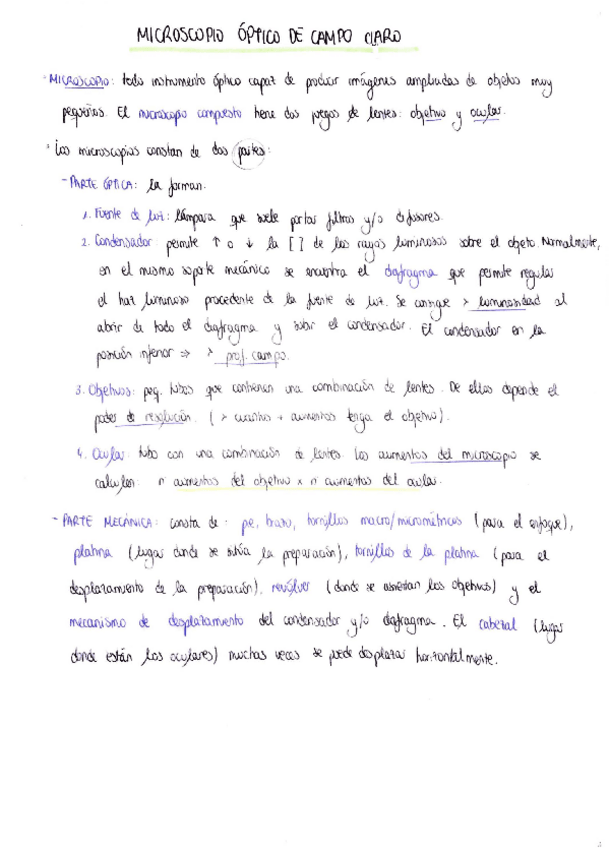 MICROSCOPIO ÓPTICO DE CAMPO CLARO
· MICROSCOPIO: todo instrumento óptico capaz de producir imágenes ampliadas de objetos muy
pequeños. El microscopio compuesto tiene dos juegos de lentes: objetivo y ocular.
· Los microscopios constan de dos partes:
- PARTE ÓPTICA: la forman.
1. Fuente de luz: lámpara que suele portar filtros y/o difusores.
2. Condensador: permite ↑ o ↓ la [ ] de los rayos luminosos sobre el objeto. Normalmente,
en el mismo soporte mecánico se encuentra el diafragma que permite regular
el haz luminoso procedente de la fuente de luz. Se consigue > luminosidad al
abrir de todo el diafragma y subir el condensador. El condensador en la
posición inferior ⇒ > prof. campo.
3. Objetivos: peq. tubos que contienen una combinación de lentes. De ellos depende el
poder de resolución. (> cuantos + aumentos tenga el objetivo).
4. Ocular: tubo con una combinación de lentes. Los aumentos del microscopio se
calculan: nº aumentos del objetivo x nº aumentos del ocular.
- PARTE MECÁNICA: consta de: pie, brazo, tornillos macro/micrométricos (para el enfoque),
platina (lugar donde se sitúa la preparación), tornillos de la platina (para el
desplazamiento de la preparación), revólver (donde se asientan los objetivos) y el
mecanismo de desplazamiento del condensador y/o diafragma. El cabezal (lugar
donde están los oculares) muchas veces se puede desplazar horizontalmente.